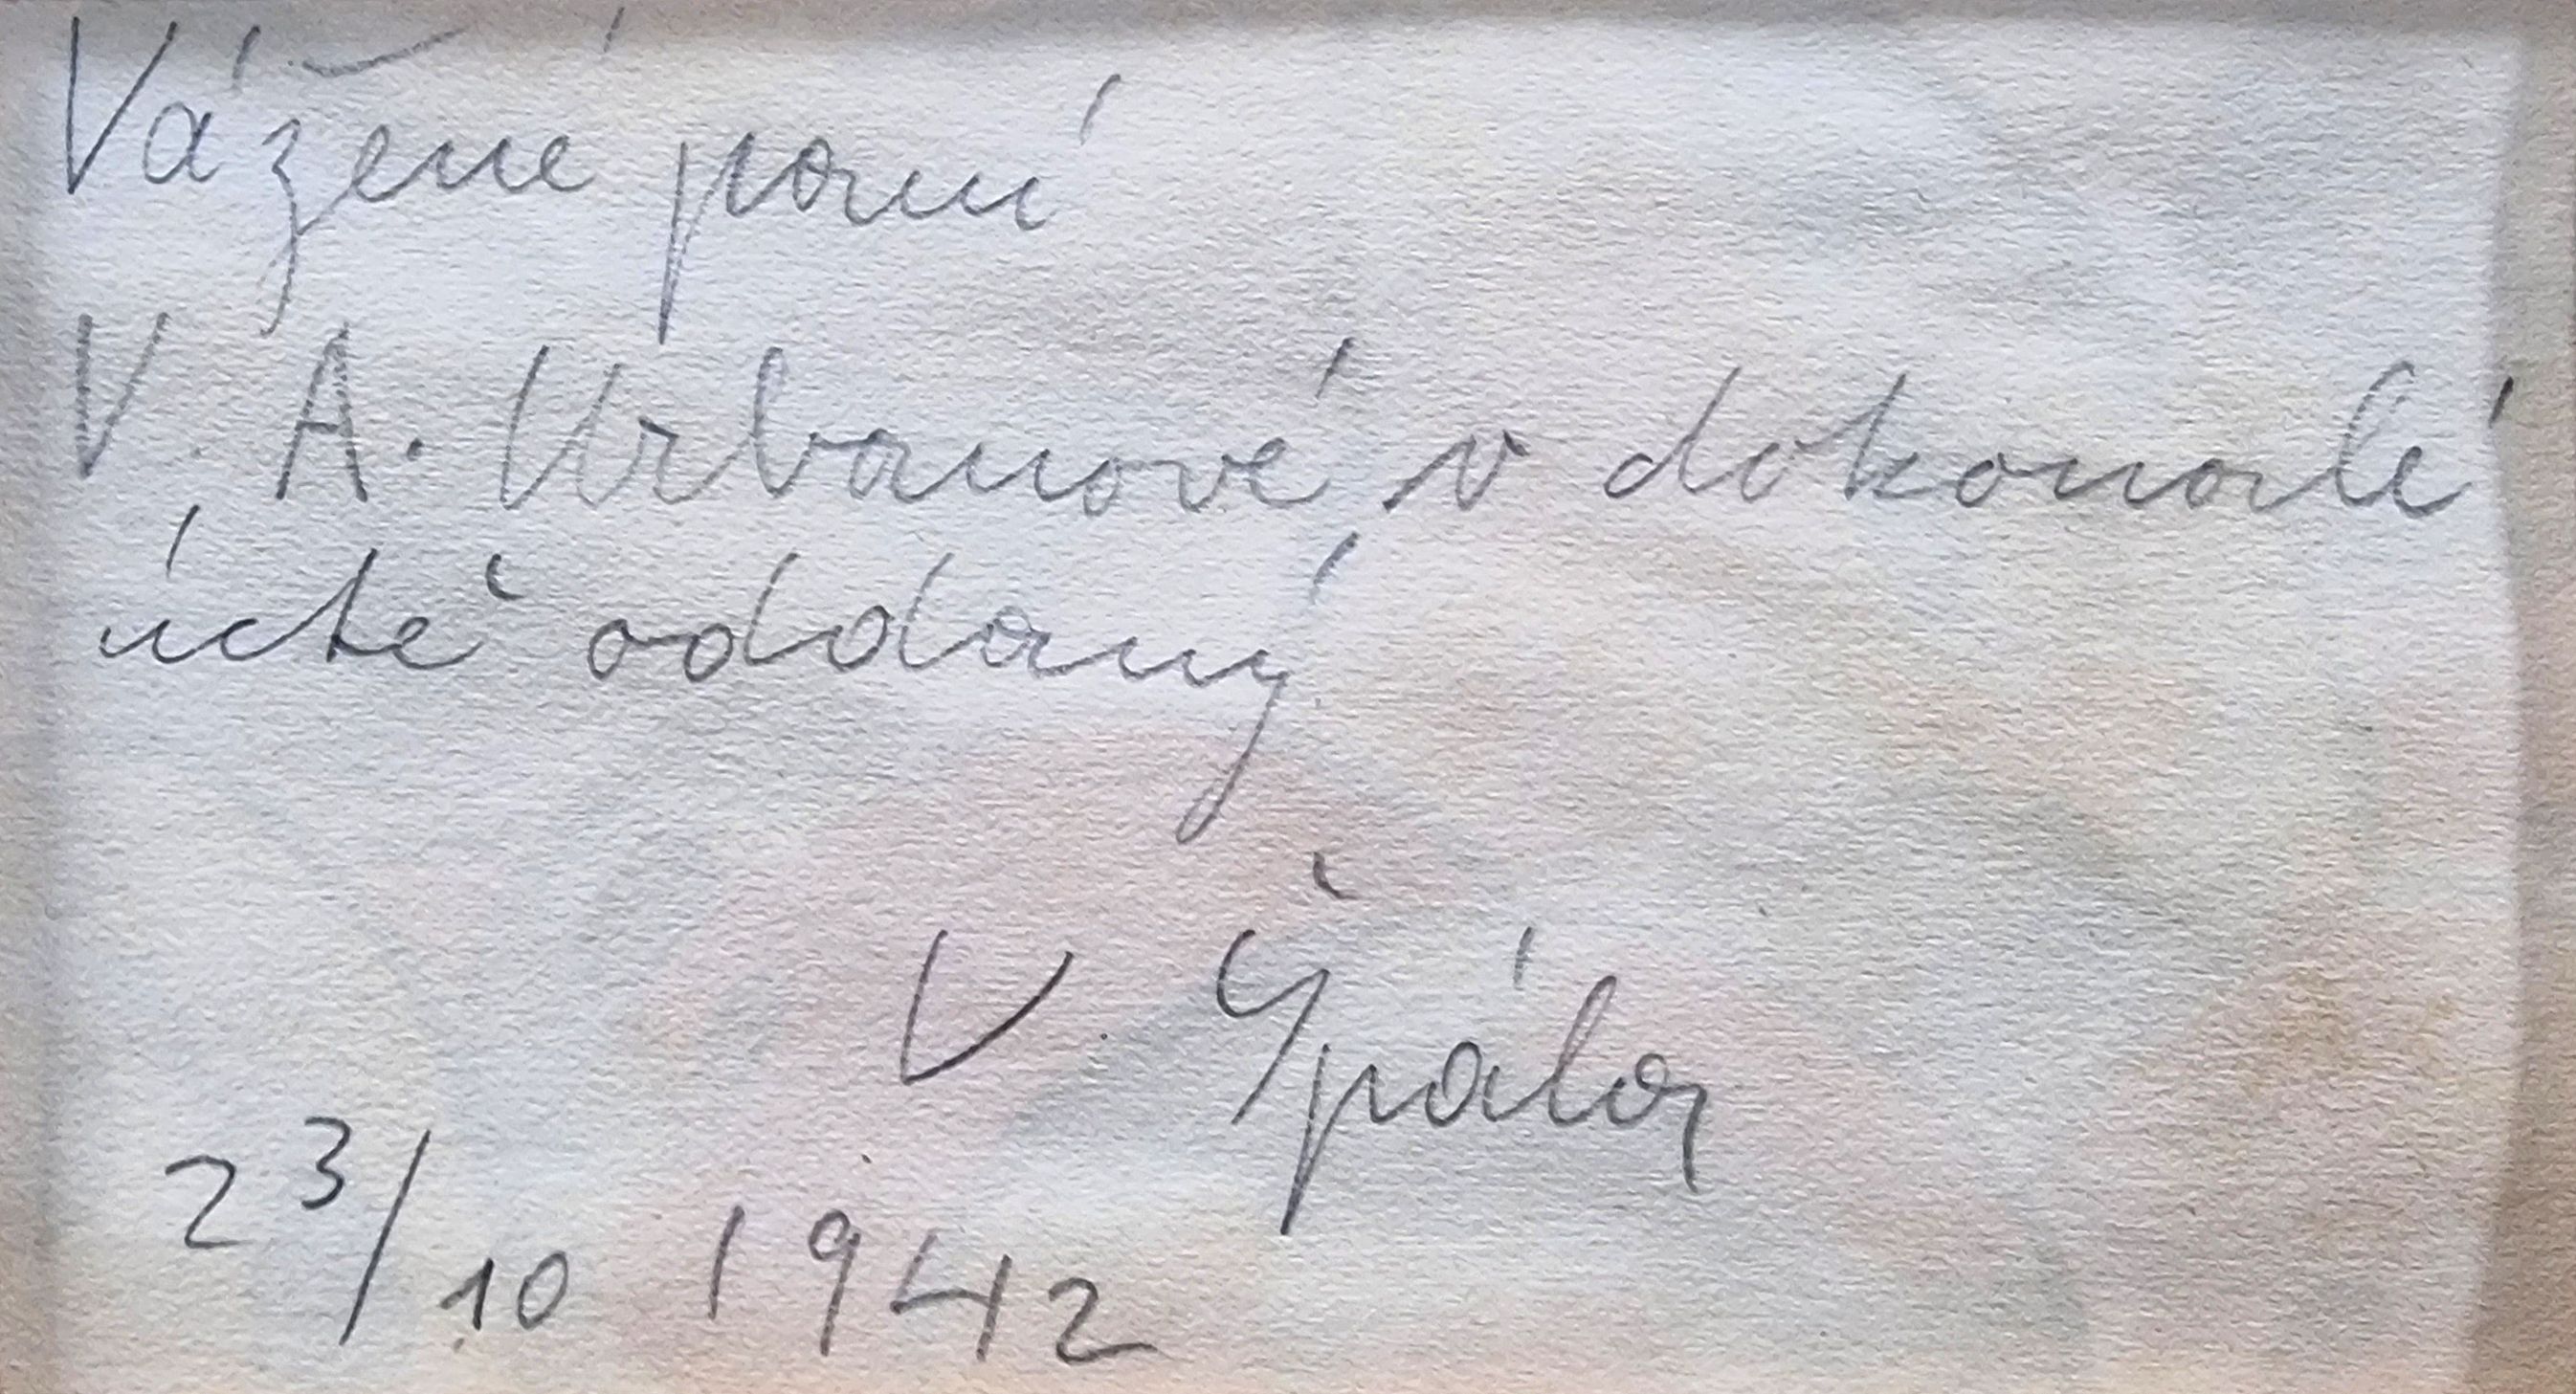 Vážené paní
V. A. Urbanové v dokonalé
úctě oddaný
V. Špála
23/10 1942